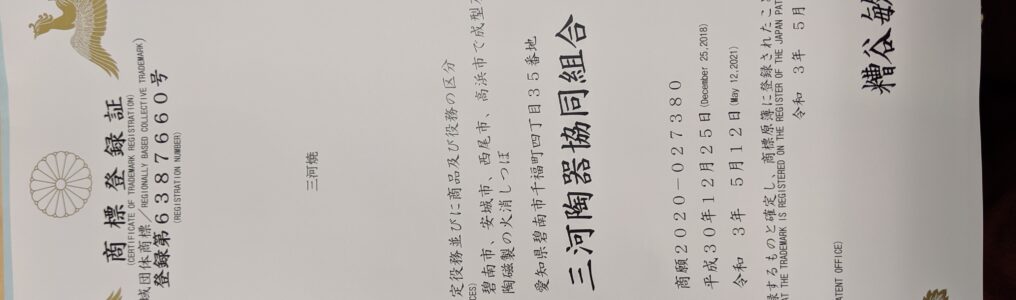 商標登録証
(CERTIFICATE OF TRADEMARK REGISTRATION)
域団体商標／REGIONALLY BASED COLLECTIVE TRADEMARK)
登録第6387660号
(REGISTRATION NUMBER)
三河焼
定役務並びに商品及び役務の区分
CES)
碧南市、安城市、西尾市、高浜市で成型
陶磁製の火消しつぼ
愛知県碧南市千福町四丁目35番地
三河陶器協同組合
商願2020-027380
平成30年12月25日(December 25,2018)
令和 3年 5月12日(May 12,2021)
録するものと確定し、商標原簿に登録されたこ
AT THE TRADEMARK IS REGISTERED ON THE REGISTER OF THE JAPAN PAT
令和 3年 5月
ATENT OFFICE)
糟谷 敏